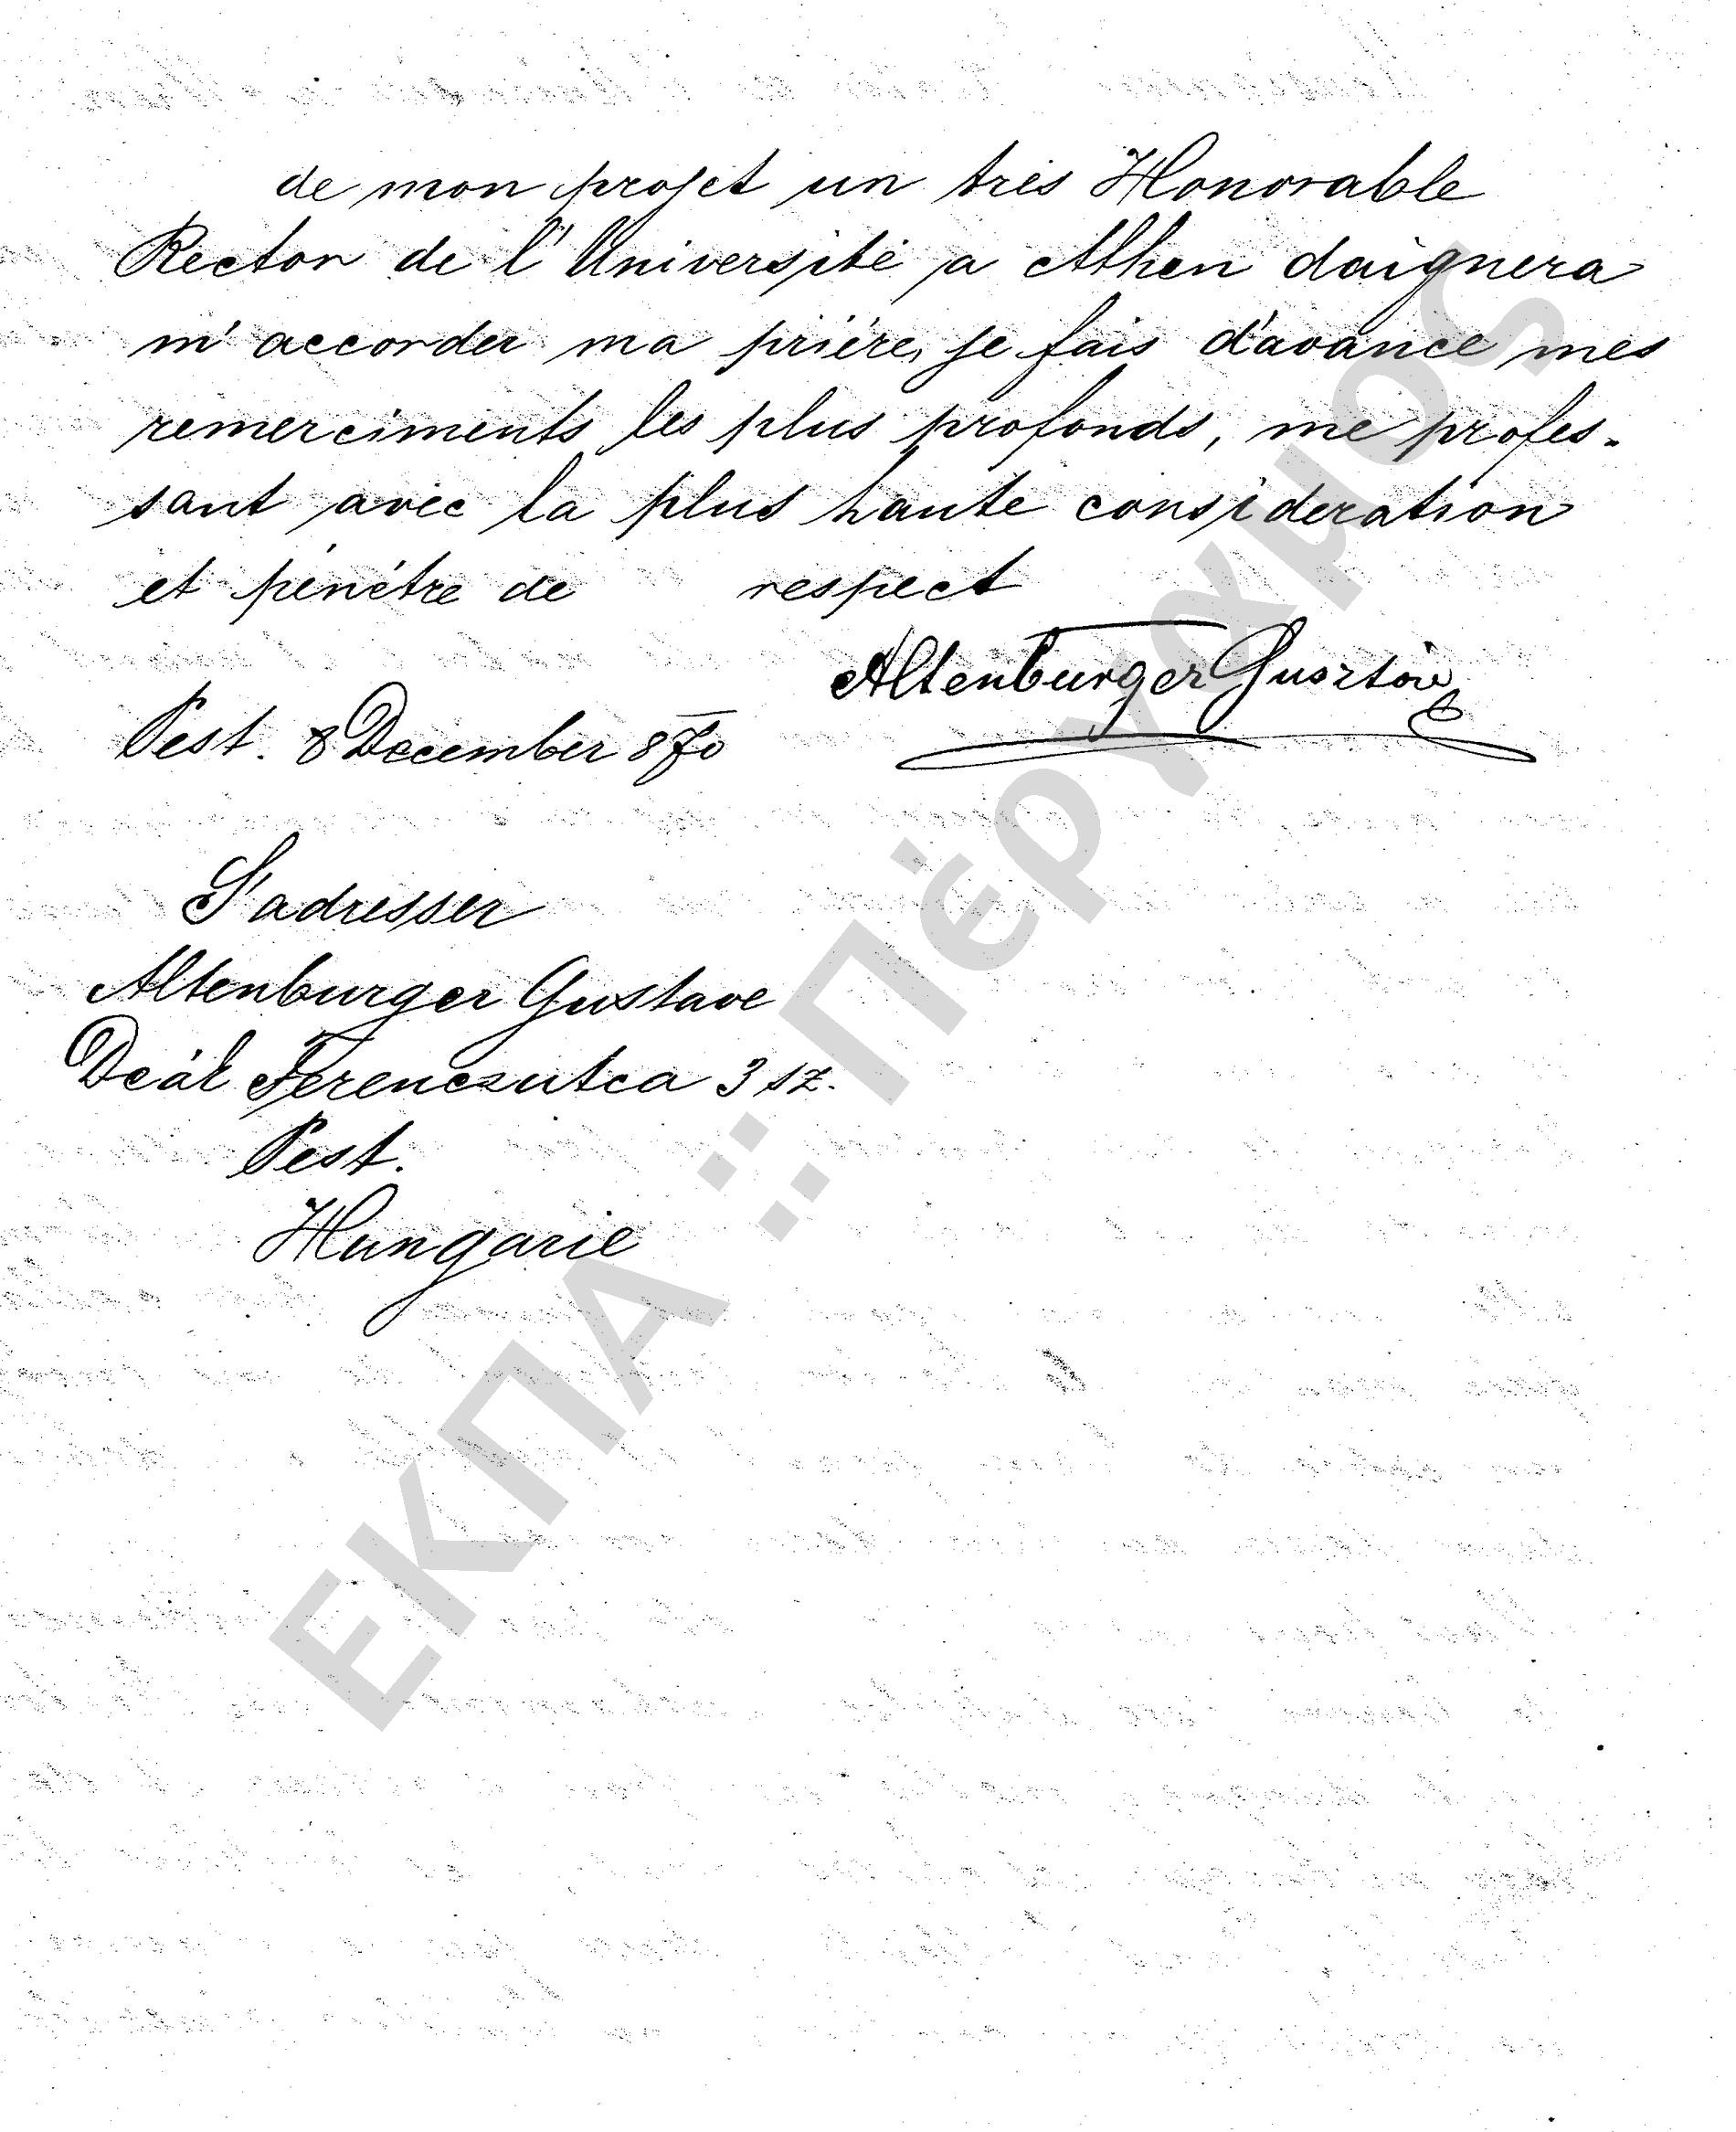 de mon projet un très Honorable
Rector de l'Université a Athen daignera
m'accorder ma prière, je fais d'avance mes
remerciments les plus profonds, me profes-
sant avec la plus haute consideration
et pénétre de respect
Altenburger Gusztáv
Pest. 8 December 870
S'adresser
Altenburger Gustave
Deák Ferenczutca 3 sz.
Pest.
Hungarie
ΕΚΠΑ :: Πέργαμος